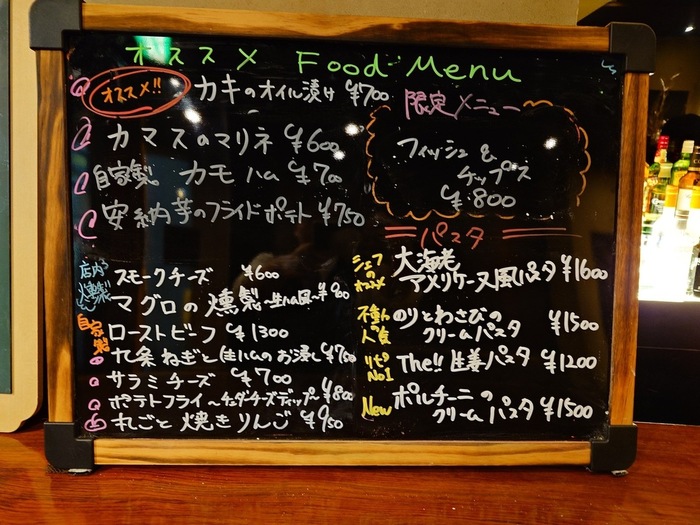 オススメ Food Menu
オススメ!! カキのオイル漬け ¥700
カマスのマリネ ¥600
自家製 カモハム ¥700
安納芋のフライドポテト ¥750
限定メニュー
フィッシュ&
チップス
¥800
店内で燻製 スモークチーズ ¥600
マグロの燻製〜生ハム風〜 ¥900
自家製 ローストビーフ ¥1300
九条ねぎと生ハムのお浸し ¥700
サラミチーズ ¥700
ポテトフライ〜チェダーチーズディップ〜 ¥800
丸ごと焼きりんご ¥950
パスタ
シェフのオススメ 大海老
アメリケーヌ風パスタ ¥1600
不動の人気 のりとわさびの
クリームパスタ ¥1500
リピNo1 The!! 生姜パスタ ¥1200
New ポルチーニの
クリームパスタ ¥1500